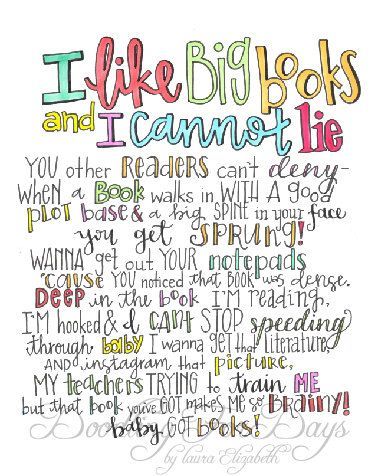 I like Big books
and I cannot lie
YOU other READERS can't deny-
WHEN a BOOK walks in WITH A good
PLOT base & a big SPINE in your face
you get SPRUNG!
WANNA get out YOUR notepads
'cause YOU noticed that BOOK was dense.
DEEP in the book I'M reading,
I'M hooked & I CAN'T STOP speeding
through baby I wanna get that literature,
AND instagram that picture,
MY teachers TRYING to train ME
but that book you've GOT makes ME so BRAINY!
baby GOT books!
Days
by Laura Elizabeth